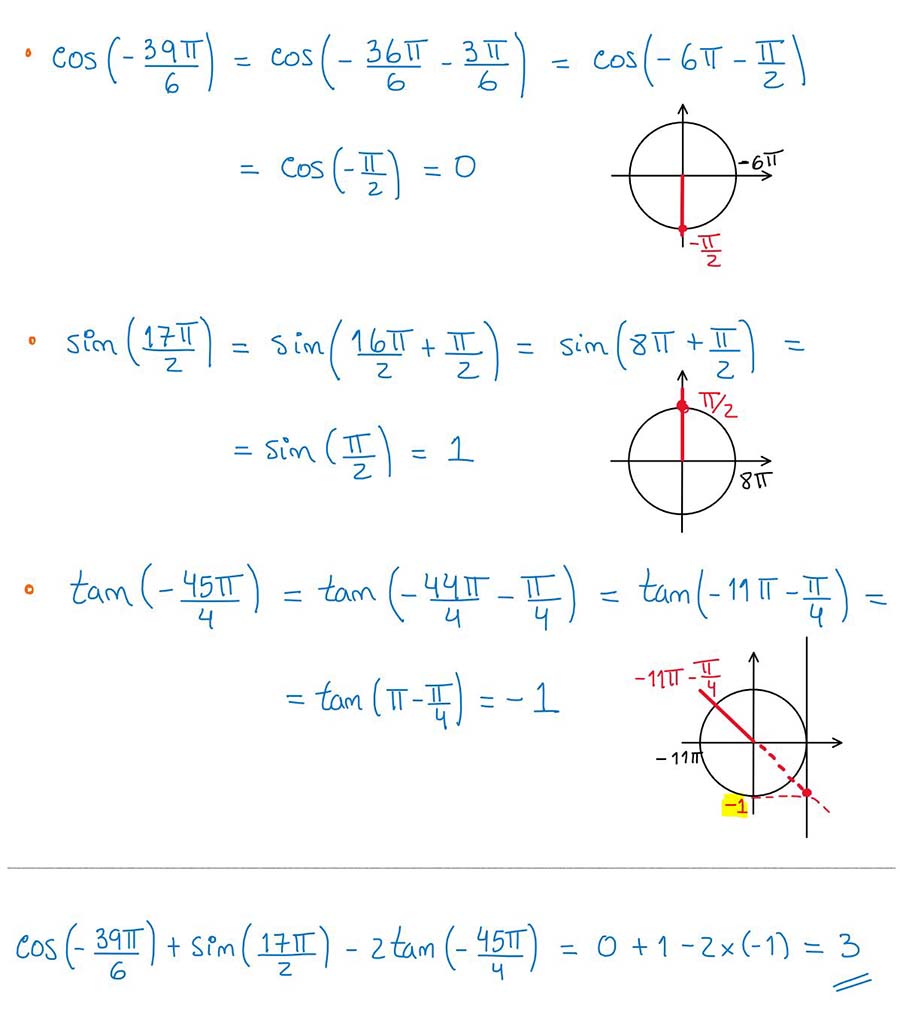 • cos(-39π/6) = cos(-36π/6 - 3π/6) = cos(-6π - π/2)
= cos(-π/2) = 0
-6π
-π/2
• sin(17π/2) = sin(16π/2 + π/2) = sin(8π + π/2) =
π/2
= sin(π/2) = 1
8π
• tan(-45π/4) = tan(-44π/4 - π/4) = tan(-11π - π/4) =
-11π - π/4
= tan(π - π/4) = -1
-11π
-1
cos(-39π/6) + sin(17π/2) - 2tan(-45π/4) = 0 + 1 - 2×(-1) = 3